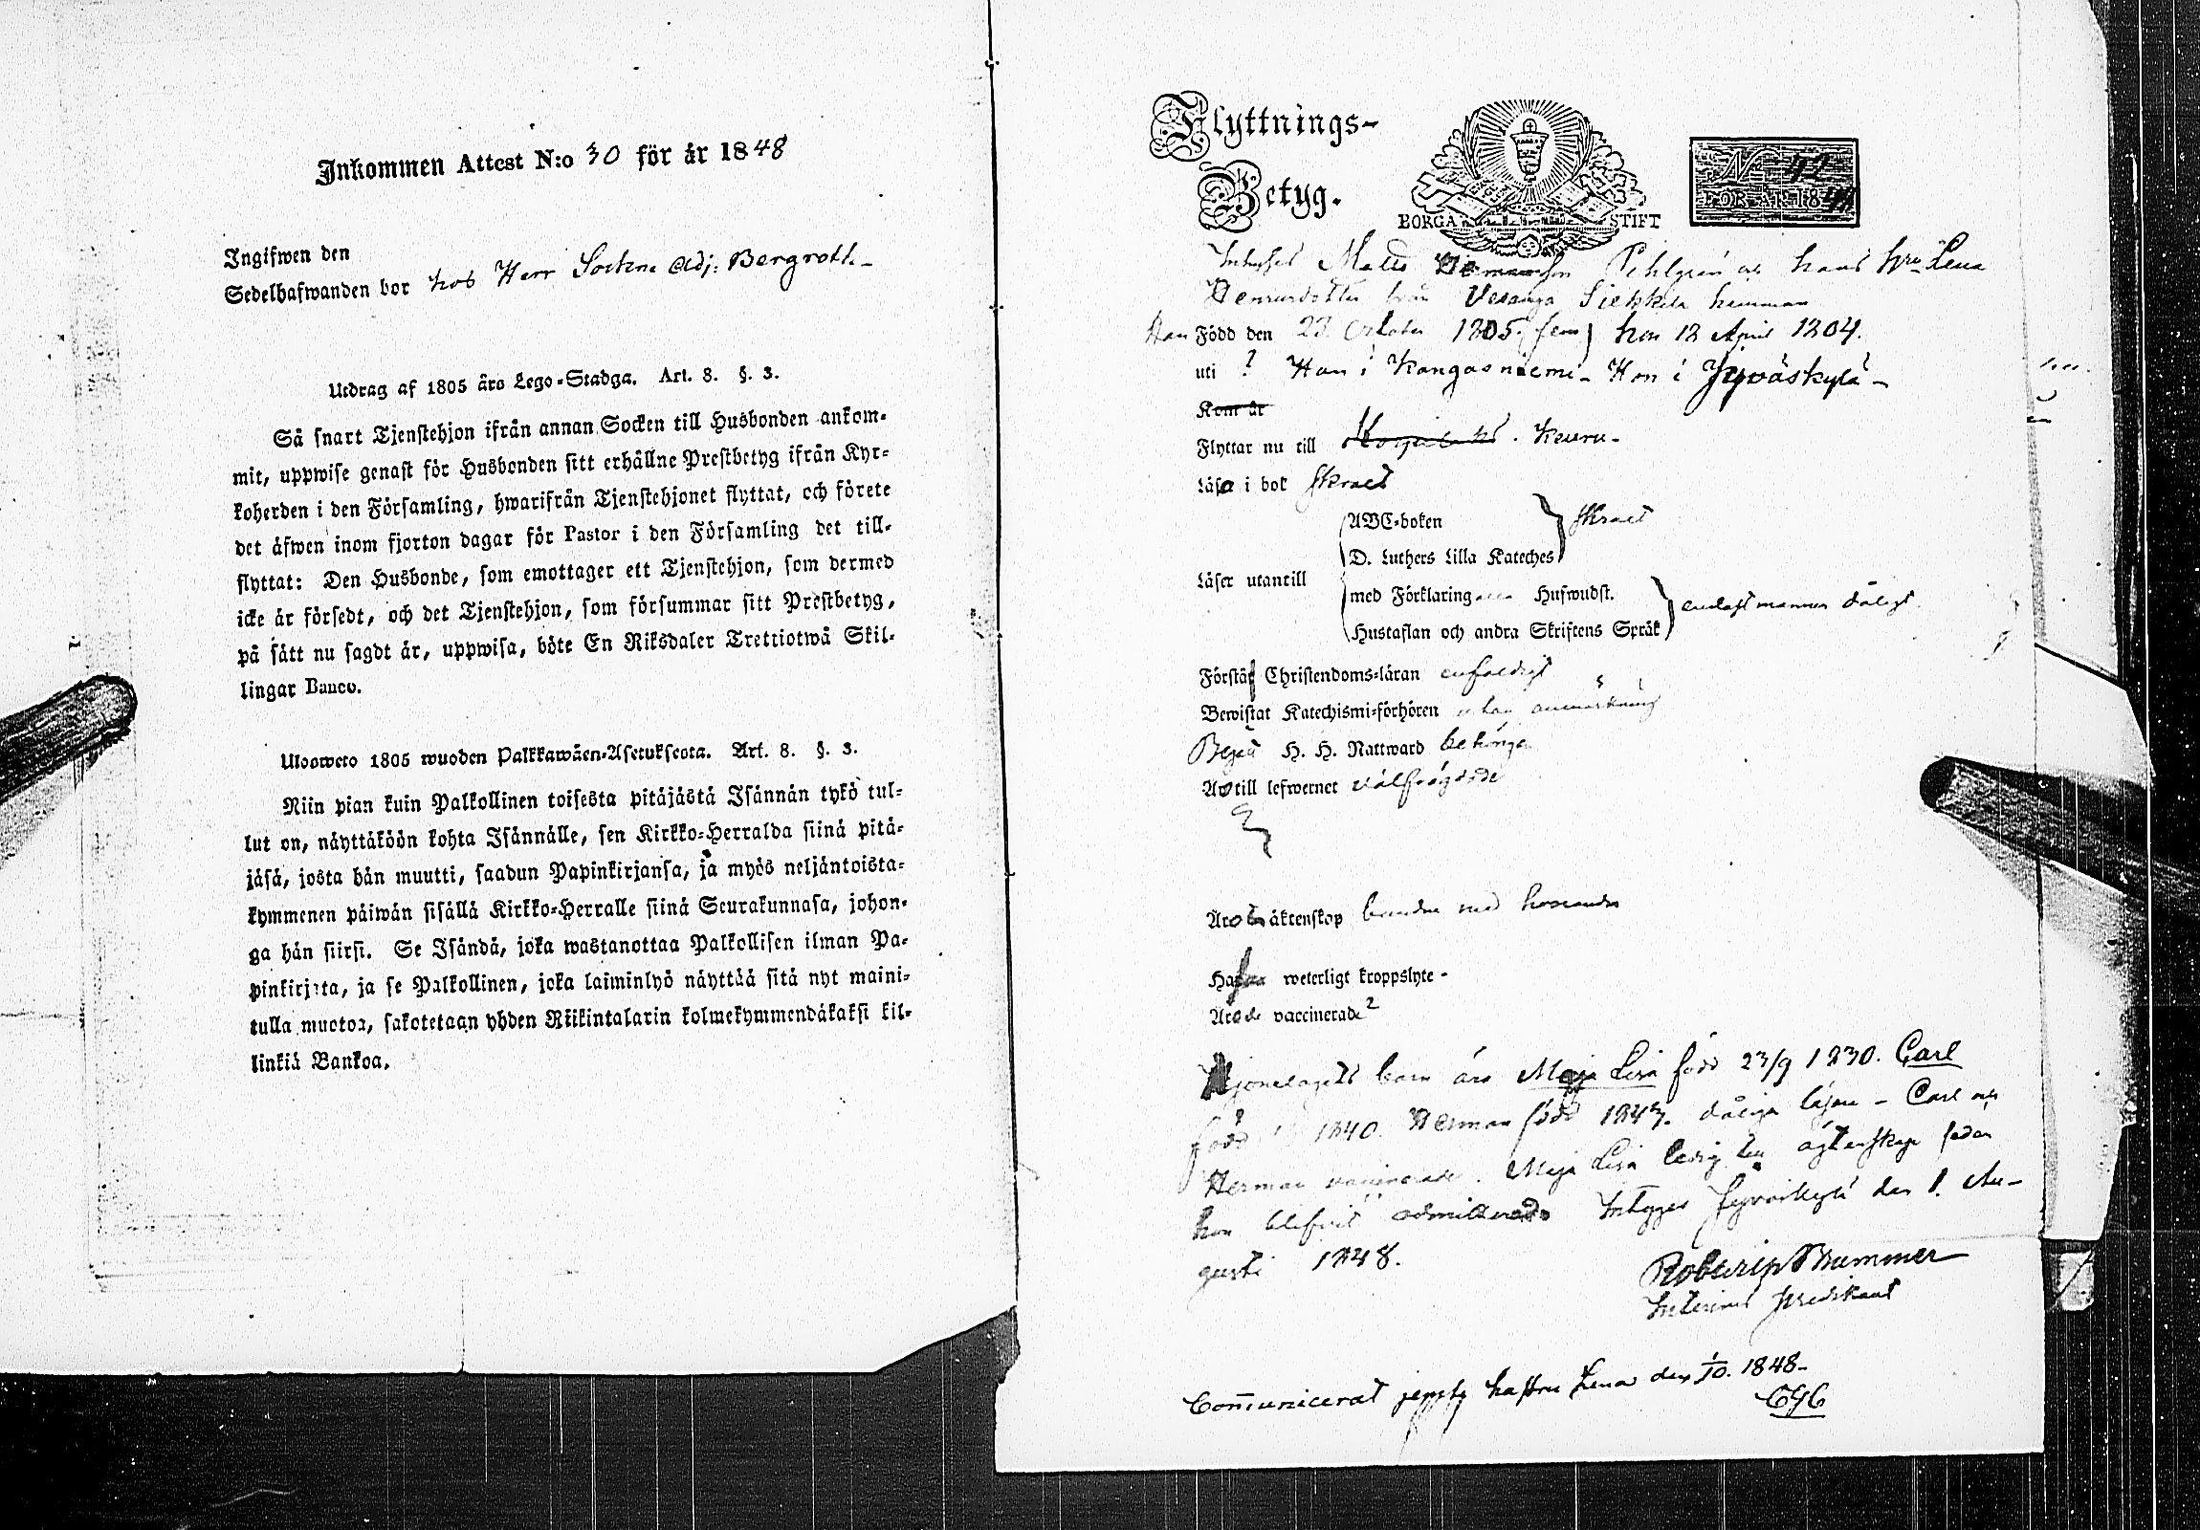 Inkommen Attest N:o 30 för år 1848
Ingifwen den
Sedelhafwanden bor hos Herr Sockne Adj: Bergroth.
Utdrag af 1805 års Lego-Stadga. Art. 8. §. 3.
Så snart Tjenstehjon ifrån annan Socken till Husbonden ankom-
mit, uppwise genast för Husbonden sitt erhållne Prestbetyg ifrån Kyr-
koherden i den Församling, hwarifrån Tjenstehjonet flyttat, och förete
det äfwen inom fjorton dagar för Pastor i den Församling det till-
flyttat: Den Husbonde, som emottager ett Tjenstehjon, som dermed
icke är försedt, och det Tjenstehjon, som försummar sitt Prestbetyg,
på sätt nu sagdt är, uppwisa, böte En Riksdaler Trettiotwå Skil-
lingar Banco.
Ulosweto 1805 wuoden Palkkawäen-Asetuksesta. Art. 8. §. 3.
Niin pian kuin Palkollinen toisesta pitäjästä Isännän tykö tul-
lut on, näyttäköön kohta Isännälle, sen Kirkko-Herralda siinä pitä-
jäsä, josta hän muutti, saadun Papinkirjansa, ja myös neljäntoista-
kymmenen päiwän sisällä Kirkko-Herralle siinä Seurakunnasa, johon-
ga hän siirsi. Se Isändä, joka wastanottaa Palkollisen ilman Pa-
pinkirjata, ja se Palkollinen, joka laiminlyö näyttää sitä nyt maini-
tulla muotoa, sakotetaan yhden Riikintalarin kolmekymmendäkaksi kil-
linkiä Bankoa.
Flyttnings-
Betyg.
BORGÅ STIFT
N 42
FÖR ÅR 1848
Matts Hermansson Pehlgrén och hans hru Lena
Henricsdotter från Vesanga Siekkila hemman
Han Född den 23 October 1805 (fem) hon 12 April 1804.
uti ? Han i Kangasniemi - Hon i Jyväskylä -
Kom år
Flyttar nu till Keuru -
Läsa i bok skralt
ABC-boken
D. Luthers Lilla Kateches
skralt
Läser utantill
med Förklaring Hufwudst.
Hustaflan och andra Skriftens Språk
endast mannen dåligt.
Förstå Christendoms-läran enfaldigt
Bewistat Katechismi-förhören utan anmärkning
Begått H. H. Nattward behörigen
Äro till lefwernet välfrägdade
Äro i äktenskap bundne med hvarandra
Hafwa weterligt kroppslyte -
Äro de vaccinerade ?
Hjonelagets barn äro Maja Lisa född 23/9 1830. Carl
född 1840. Herman född 1843. dåliga läsare - Carl och
Herman vaccinerade. Maja Lisa ledig till ägtenskap sedan
hon blifvit admitterad. Intygar Jyväskylä den 1. Au-
gusti 1848.
Brummer
Interims predikant
Communicerat hustru Lena den 1/10. 1848 -